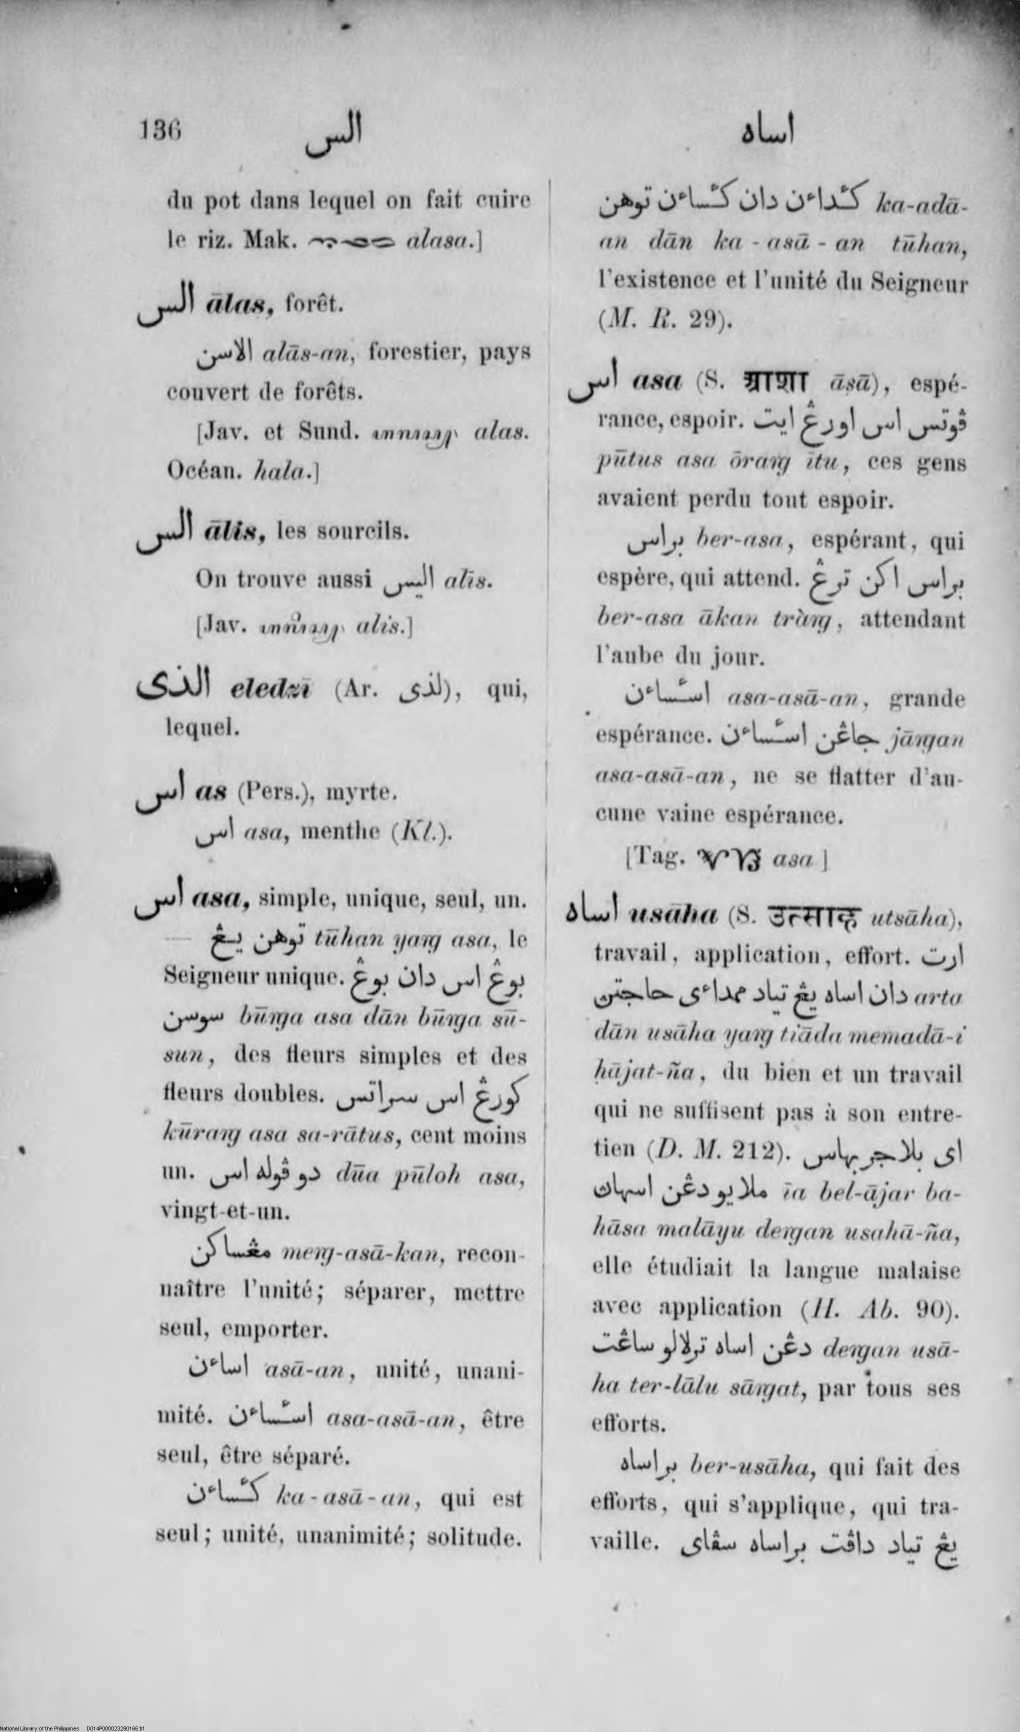 136
الس
اساه
du pot dans lequel on fait cuire
le riz. Mak. alasa.]
الس ālas, forêt.
الاسن alās-an, forestier, pays
couvert de forêts.
[Jav. et Sund. alas.
Océan. hala.]
الس ālis, les sourcils.
On trouve aussi اليس alīs.
[Jav. alis.]
الذى eledzī (Ar. لذى), qui,
lequel.
اس as (Pers.), myrte.
اس asa, menthe (Kl.).
اس asa, simple, unique, seul, un.
— توهن يڠ tūhan yaṅg asa, le
Seigneur unique. بوڠ اس دان بوڠ
سوسن būṅga asa dān būṅga sū-
sun, des fleurs simples et des
fleurs doubles. كورڠ اس سراتس
kūraṅg asa sa-rātus, cent moins
un. دو ڤوله اس dūa pūloh asa,
vingt-et-un.
مڠساكن meṅg-asā-kan, recon-
naître l'unité; séparer, mettre
seul, emporter.
اساءن asā-an, unité, unani-
mité. اس٢ساءن asa-asā-an, être
seul, être séparé.
كئساءن ka-asā-an, qui est
seul; unité, unanimité; solitude.
كئداءن دان كئساءن توهن ka-adā-
an dān ka-asā-an tūhan,
l'existence et l'unité du Seigneur
(M. R. 29).
اس asa (S. आशा āṣā), espé-
rance, espoir. ڤوتس اس اورڠ ايت
pūtus asa ōraṅg ītu, ces gens
avaient perdu tout espoir.
براس ber-asa, espérant, qui
espère, qui attend. براس اكن ترڠ
ber-asa ākan tràṅg, attendant
l'aube du jour.
اس٢ساءن asa-asā-an, grande
espérance. جاڠن اس٢ساءن jāṅgan
asa-asā-an, ne se flatter d'au-
cune vaine espérance.
[Tag. asa]
اساه usāha (S. उत्साह utsāha),
travail, application, effort. ارت
دان اساه يڠ تياد ممداءى حاجتن arta
dān usāha yaṅg tiāda memadā-i
ḥājat-ña, du bien et un travail
qui ne suffisent pas à son entre-
tien (D. M. 212). اى بلاجر بهاس
ملايو دڠن اسهاڽ īa bel-ājar ba-
hāsa malāyu deṅgan usahā-ña,
elle étudiait la langue malaise
avec application (H. Ab. 90).
دڠن اساه ترلالو ساڠت deṅgan usā-
ha ter-lālu sāṅgat, par tous ses
efforts.
براساه ber-usāha, qui fait des
efforts, qui s'applique, qui tra-
vaille. يڠ تياد داڤت براساه سڤاى
National Library of the Philippines